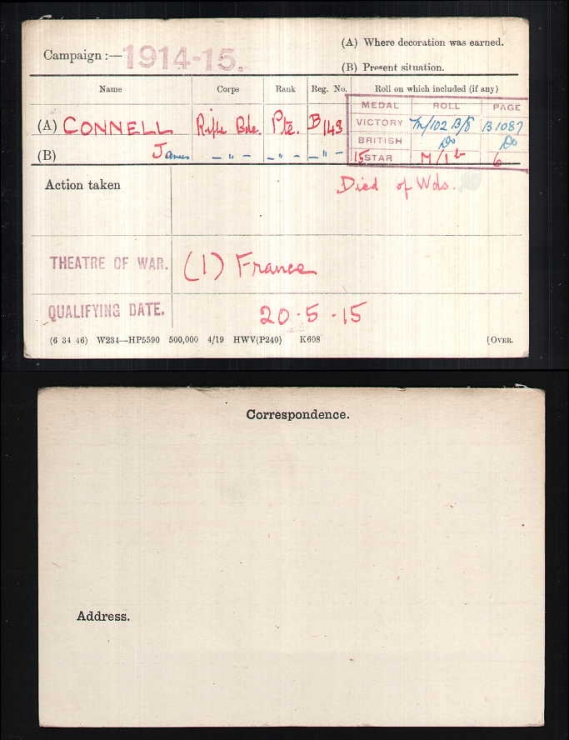 Campaign :— 1914-15.
(A) Where decoration was earned.
(B) Present situation.
Name Corps Rank Reg. No. Roll on which included (if any)
MEDAL ROLL PAGE
(A) CONNELL Rifle Bde. Pte. B 143 VICTORY TM/102 B/8 B1087
BRITISH Do Do
(B) James — " — — " — — " — 15 STAR M/1 6
Action taken Died of Wds.
THEATRE OF WAR. (1) France
QUALIFYING DATE. 20·5·15
(6 34 46) W234—HP5590 500,000 4/19 HWV(P240) K608 [OVER.
Correspondence.
Address.